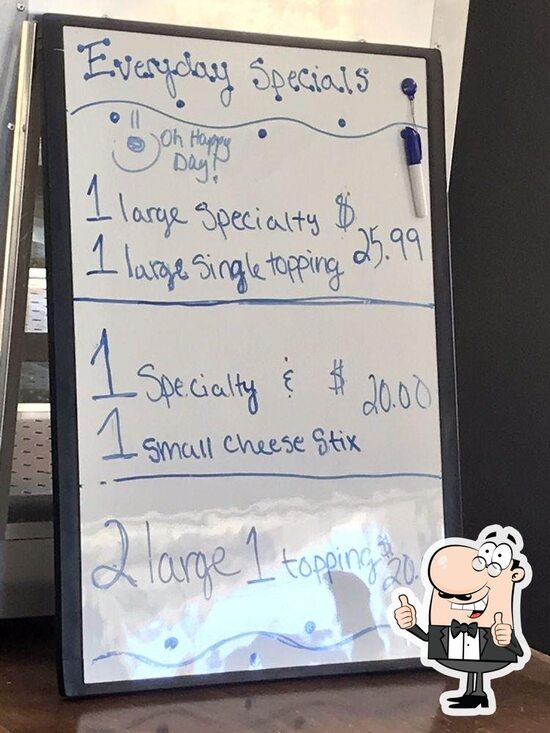 Everyday Specials
Oh Happy
Day!
1 large Specialty $
1 large Single topping 25.99
1 Specialty & $ 20.00
1 Small Cheese Stix
2 large 1 topping $20.